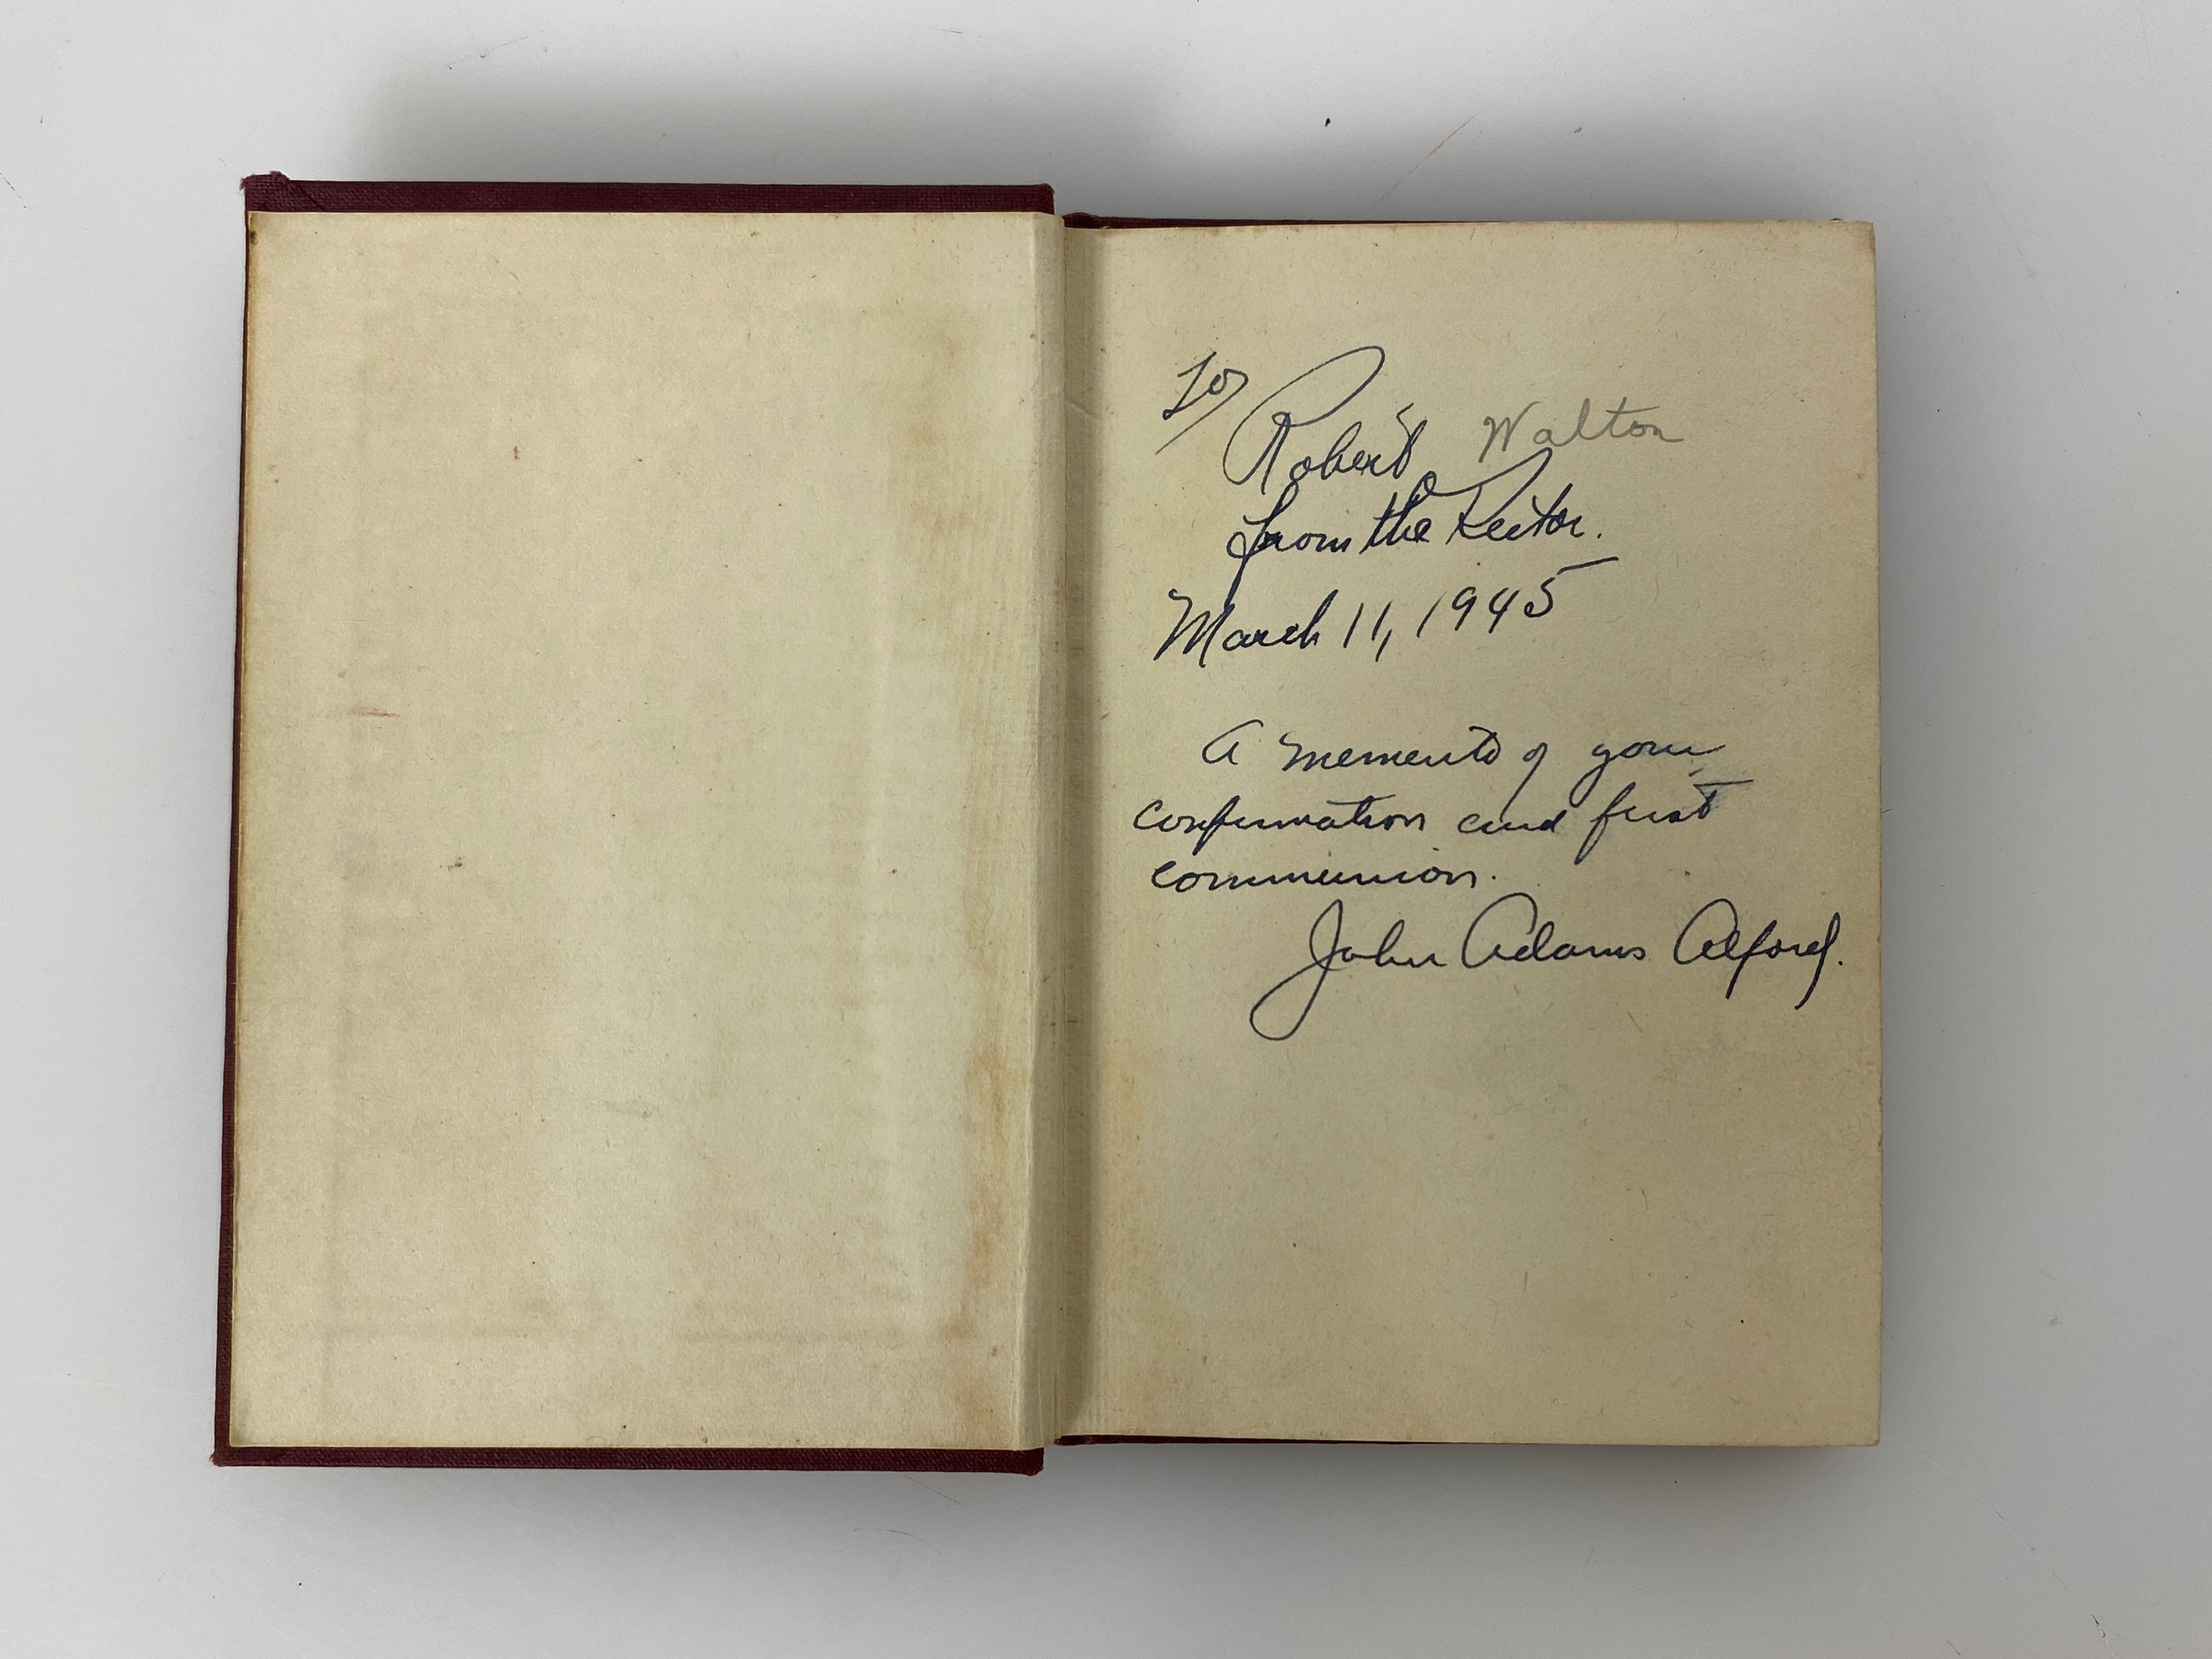 To
Robert Walton
from the Rector.
March 11, 1945
A memento of your
confirmation and first
communion.
John Adams Alford.